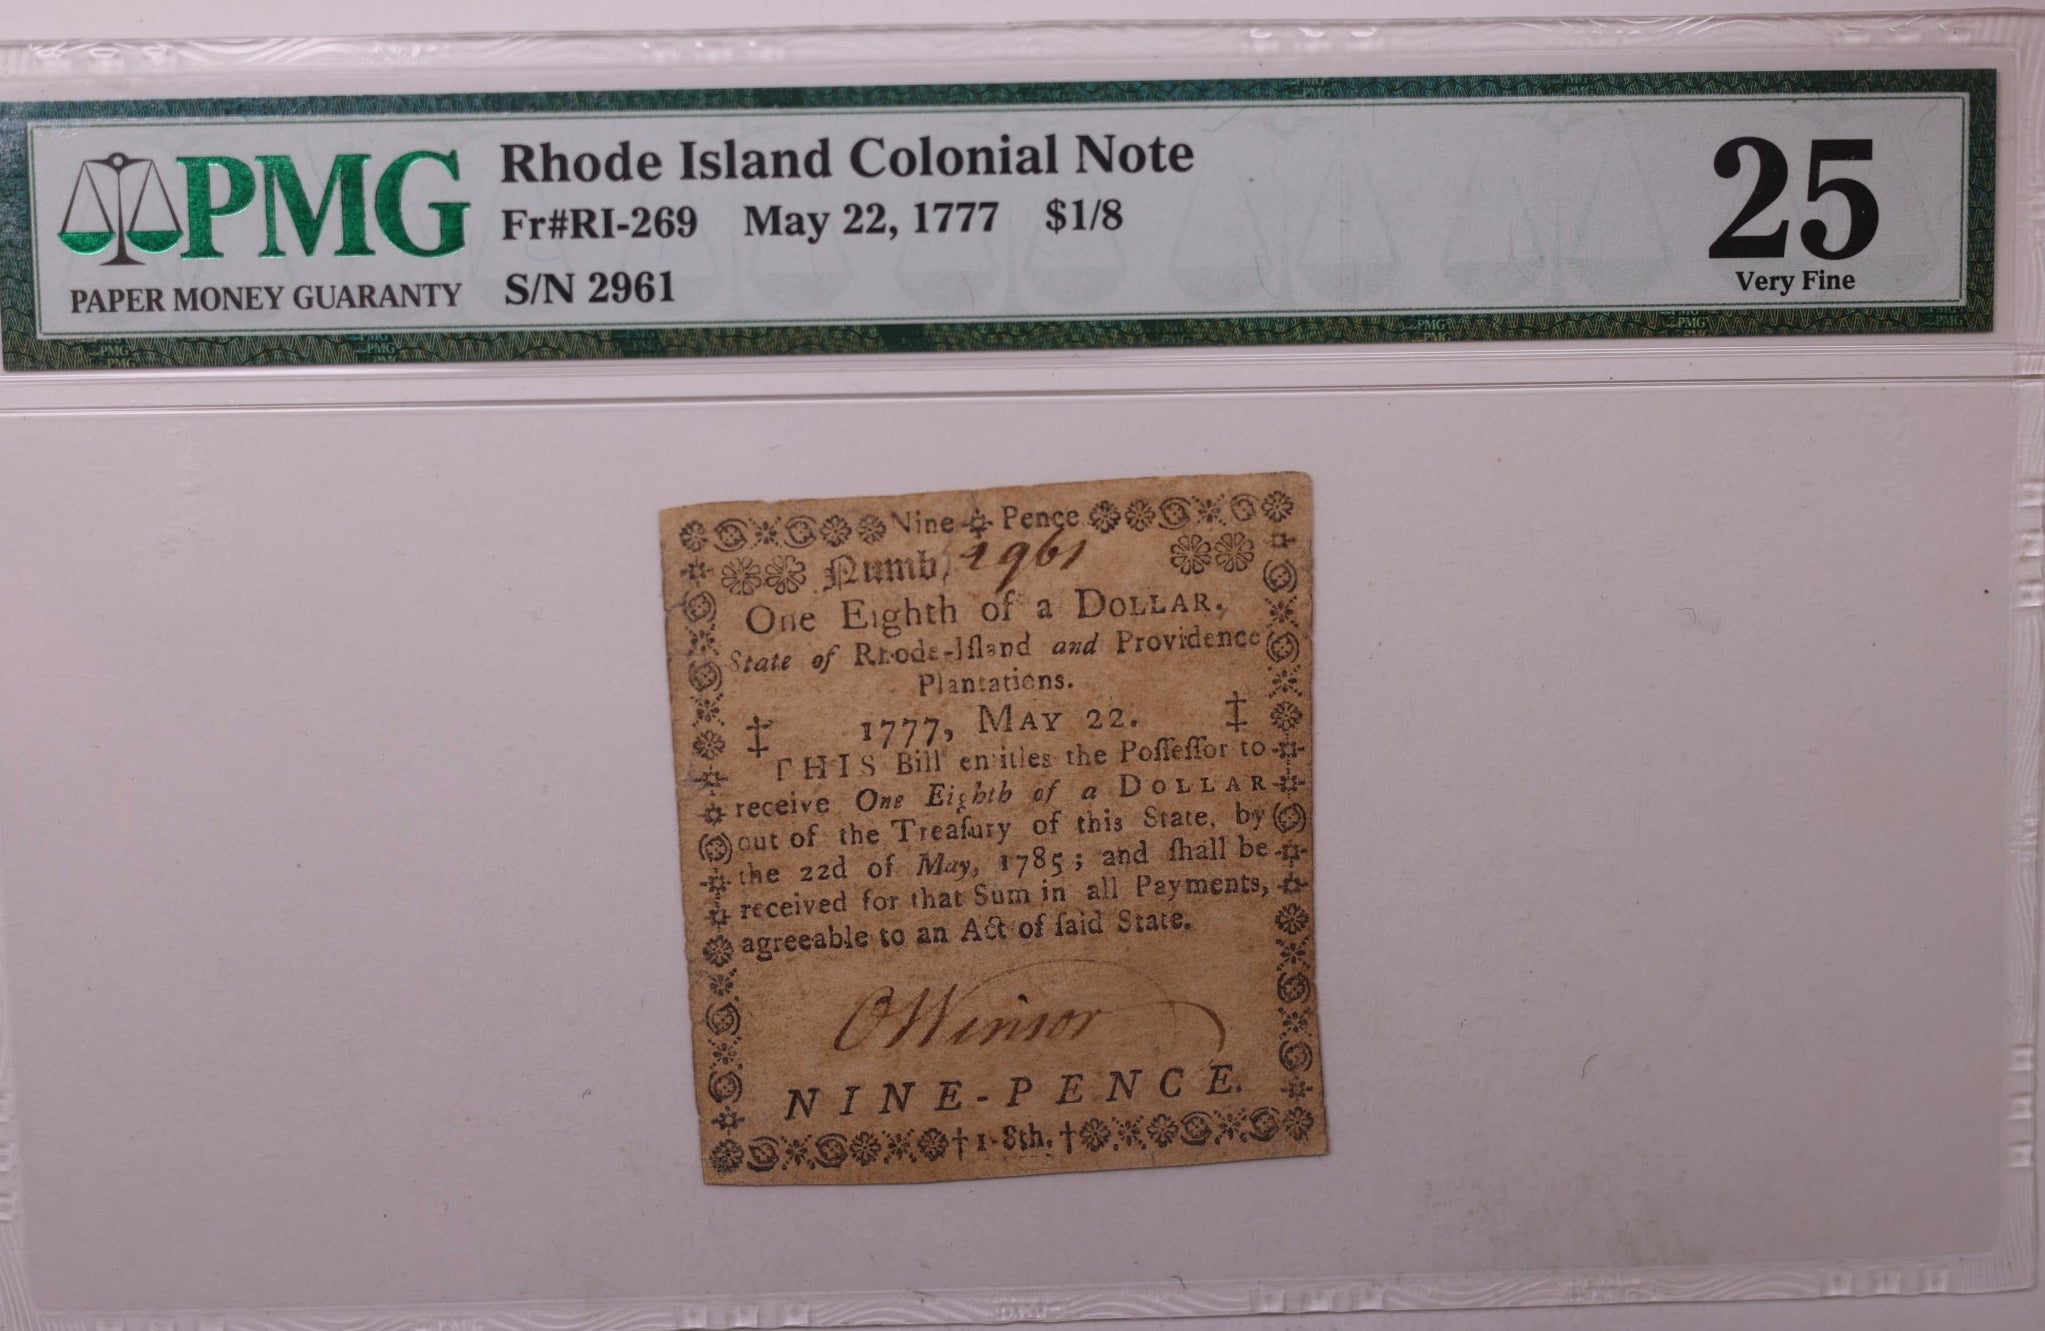 PMG
PAPER MONEY GUARANTY
Rhode Island Colonial Note
Fr#RI-269 May 22, 1777 $1/8
S/N 2961
25
Very Fine
Nine Pence
Numb. 2961
One Eighth of a DOLLAR,
State of Rhode-Iſland and Providence
Plantations.
‡ 1777, MAY 22. ‡
THIS Bill entitles the Poſſeſſor to
receive One Eighth of a DOLLAR
out of the Treaſury of this State, by
the 22d of May, 1785; and ſhall be
received for that Sum in all Payments,
agreeable to an Act of ſaid State.
O Winsor
NINE-PENCE.
† 1-8th. †